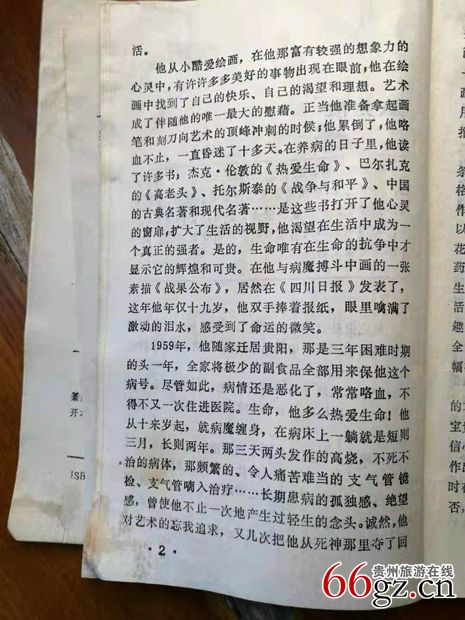 活。
他从小酷爱绘画，在他那富有较强的想象力的
心灵中，有许许多多美好的事物出现在眼前，他在绘
画中找到了自己的快乐、自己的渴望和理想。艺术
成了伴随他的唯一最大的慰藉。正当他准备拿起画
笔和刻刀向艺术的顶峰冲刺的时侯；他累倒了，他咯
血不止，一直昏迷了十多天。在养病的日子里，他读
了许多书；杰克·伦敦的《热爱生命》、巴尔扎克
的《高老头》、托尔斯泰的《战争与和平》、中国
的古典名著和现代名著……是这些书打开了他心灵
的窗扉，扩大了生活的视野，他渴望在生活中成为一
个真正的强者。是的，生命唯有在生命的抗争中才
显示它的辉煌和可贵。在他与病魔搏斗中画的一张
素描《战果公布》，居然在《四川日报》发表了，
这年他年仅十九岁，他双手捧着报纸，眼里噙满了
激动的泪水，感受到了命运的微笑。
1959年，他随家迁居贵阳，那是三年困难时期
的头一年，全家将极少的副食品全部用来保他这个
病号。尽管如此，病情还是恶化了，常常咯血，不
得不又一次住进医院。生命，他多么热爱生命！他
从十来岁起，就病魔缠身，在病床上一躺就是短则
三月，长则两年。那三天两头发作的高烧，不死不
治的病体，那频繁的、令人痛苦难当的支气管镜
检、支气管嘀入治疗……长期患病的孤独感、绝望
感，曾使他不止一次地产生过轻生的念头。诚然，他
对艺术的忘我追求，又几次把他从死神那里夺了回
·2·
ISB
贵州旅游在线
66gz.cn